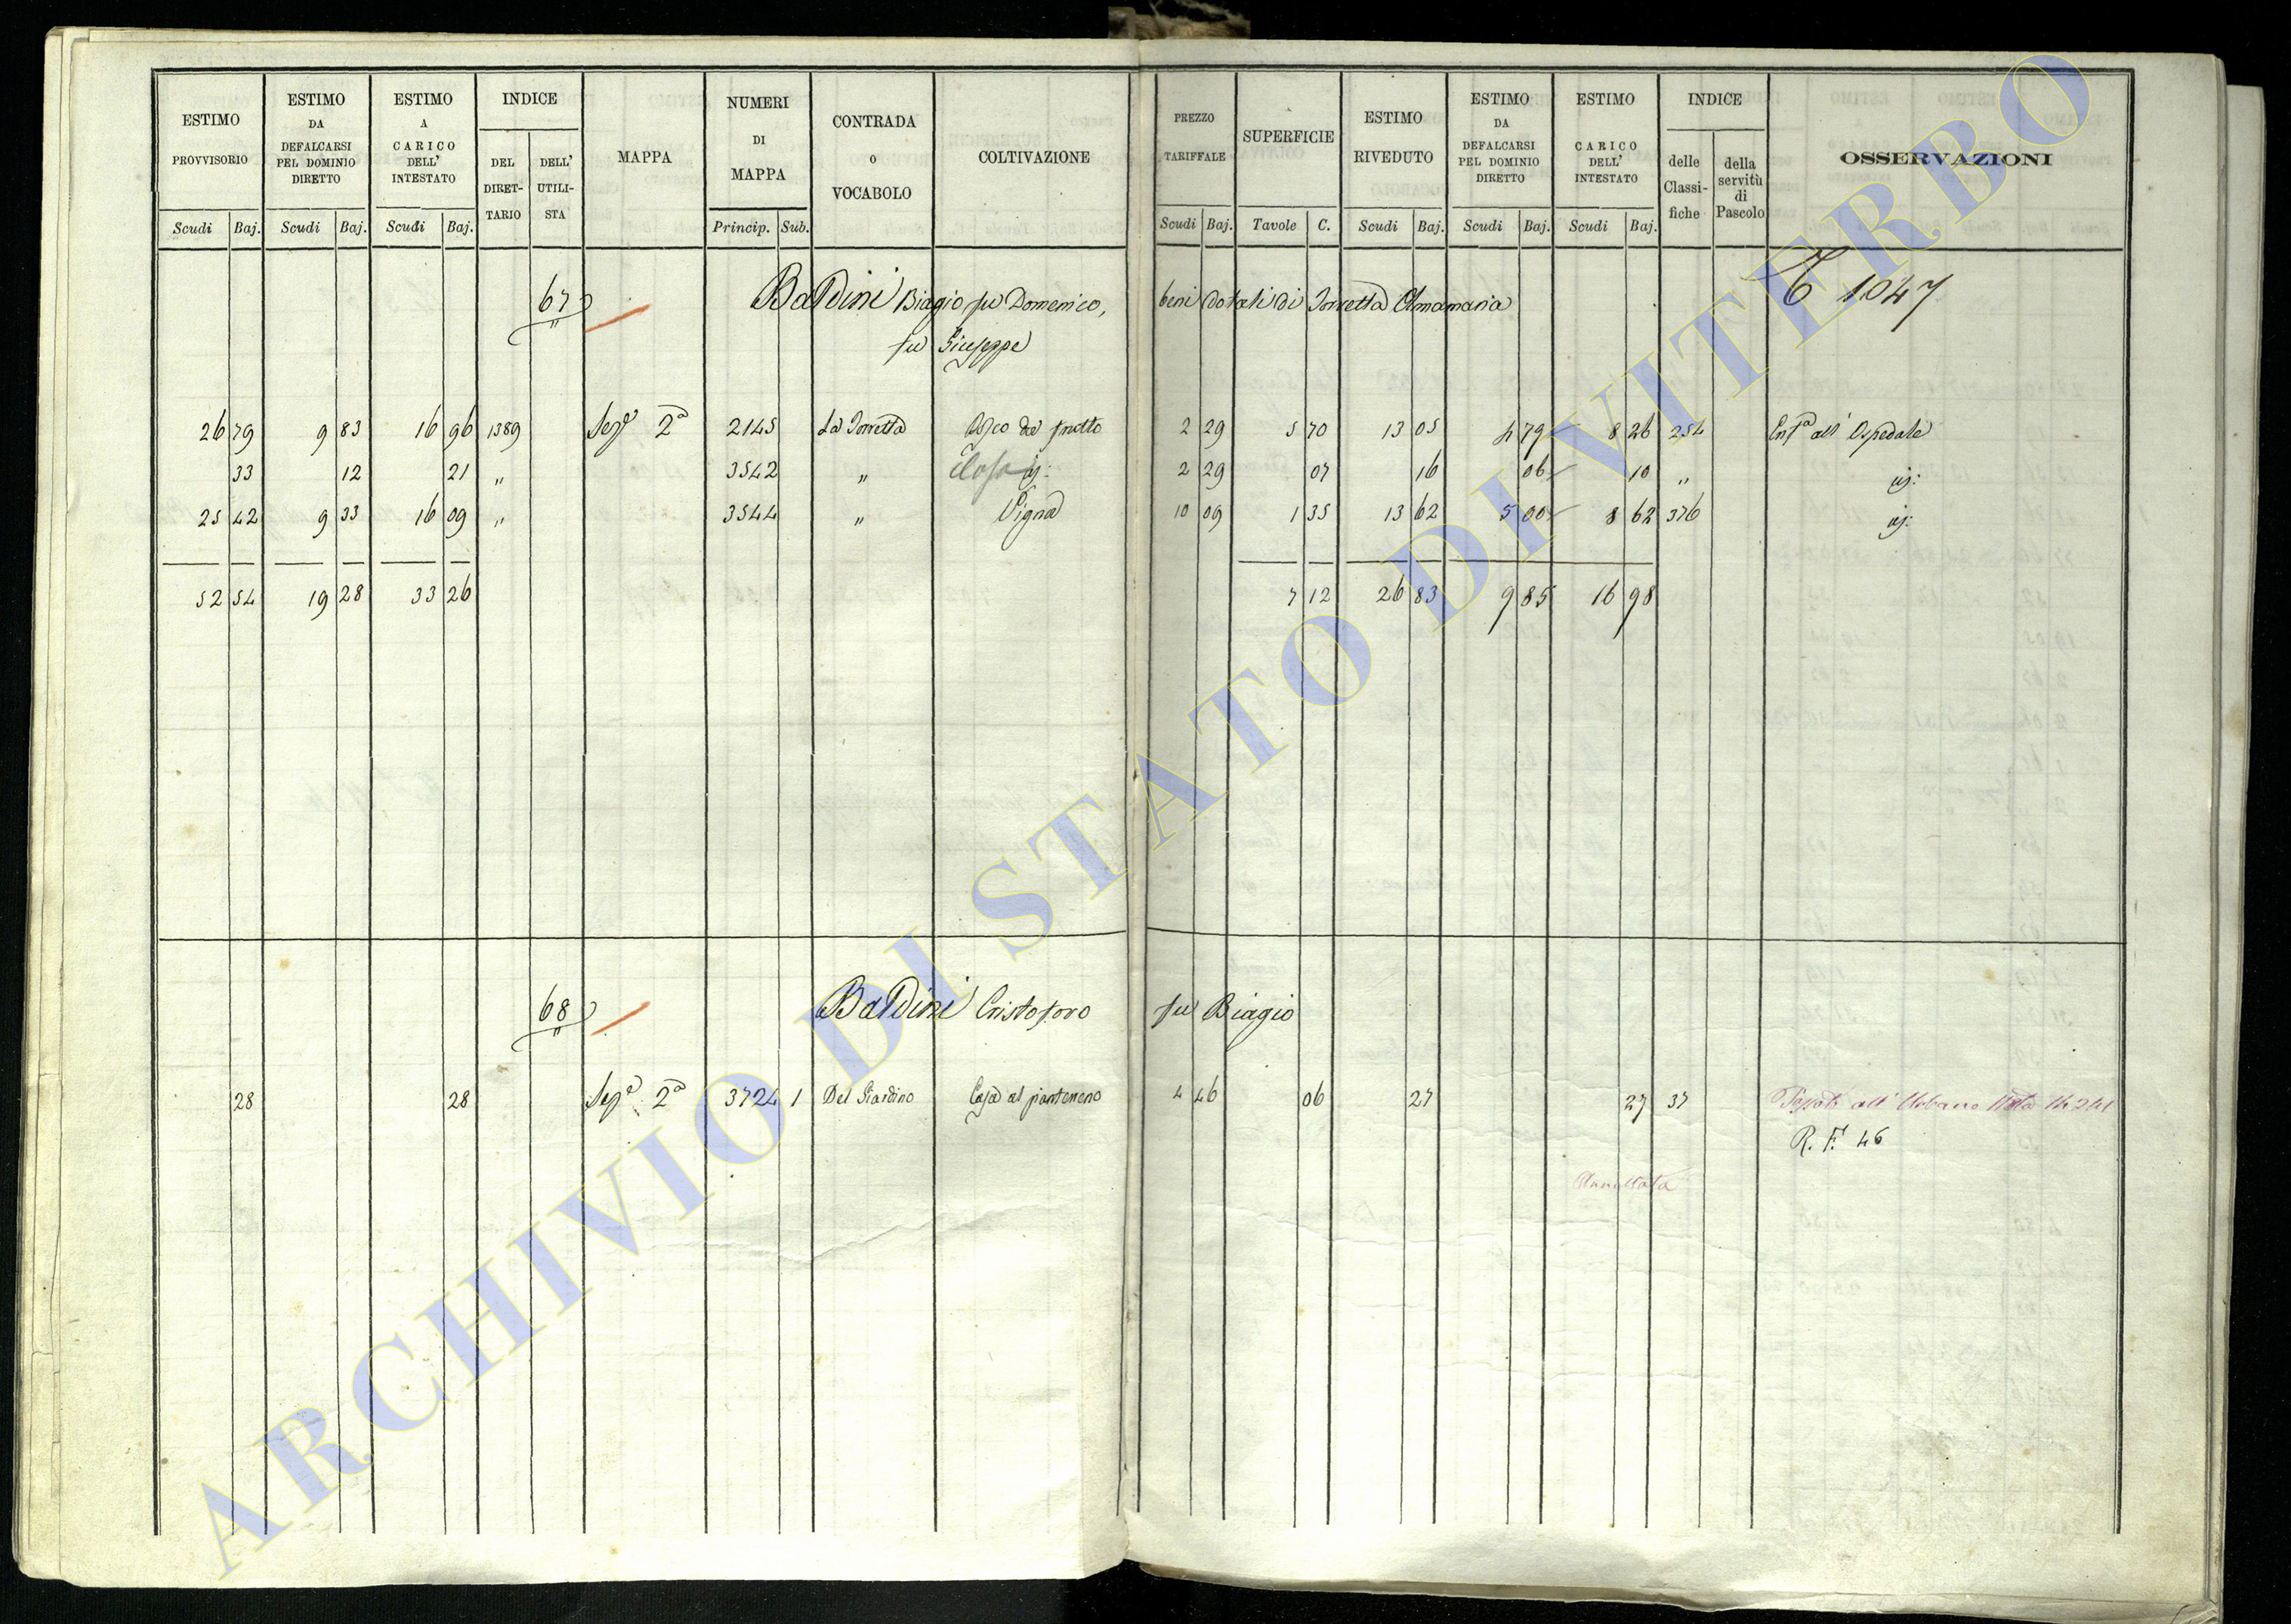 ESTIMO PROVVISORIO
Scudi Baj.
ESTIMO DA DEFALCARSI PEL DOMINIO DIRETTO
Scudi Baj.
ESTIMO A CARICO DELL' INTESTATO
Scudi Baj.
INDICE
DEL DIRET- TARIO
DELL' UTILI- STA
MAPPA
NUMERI DI MAPPA
Princip. Sub.
CONTRADA O VOCABOLO
COLTIVAZIONE
PREZZO TARIFFALE
Scudi Baj.
SUPERFICIE
Tavole C.
ESTIMO RIVEDUTO
Scudi Baj.
ESTIMO DA DEFALCARSI PEL DOMINIO DIRETTO
Scudi Baj.
ESTIMO A CARICO DELL' INTESTATO
Scudi Baj.
INDICE
delle Classi- fiche
della servitù di Pascolo
OSSERVAZIONI
67 Baldini Biagio fu Domenico, beni dotali di Torretta Annamaria 1047
fu Giuseppe
26 79 9 83 16 96 1389 Sezᵉ 2ª 2145 La Torretta 2 29 5 70 13 05 4 79 8 26 254 Enfª all' Ospedale
33 12 21 " 3542 " Casa 2 29 07 16 06 10 " id:
25 42 9 33 16 09 " 3544 " Vigna 10 09 1 35 13 62 5 00 8 62 376 id:
52 54 19 28 33 26 7 12 26 83 9 85 16 98
68 Baldini Cristoforo fu Biagio
28 28 Sezᵉ 2ª 3724 1 Del Giardino Casa al pianterreno 4 46 06 27 27 37 Passata all' Urbano
R. F. 46
Annullata
ARCHIVIO DI STATO DI VITERBO